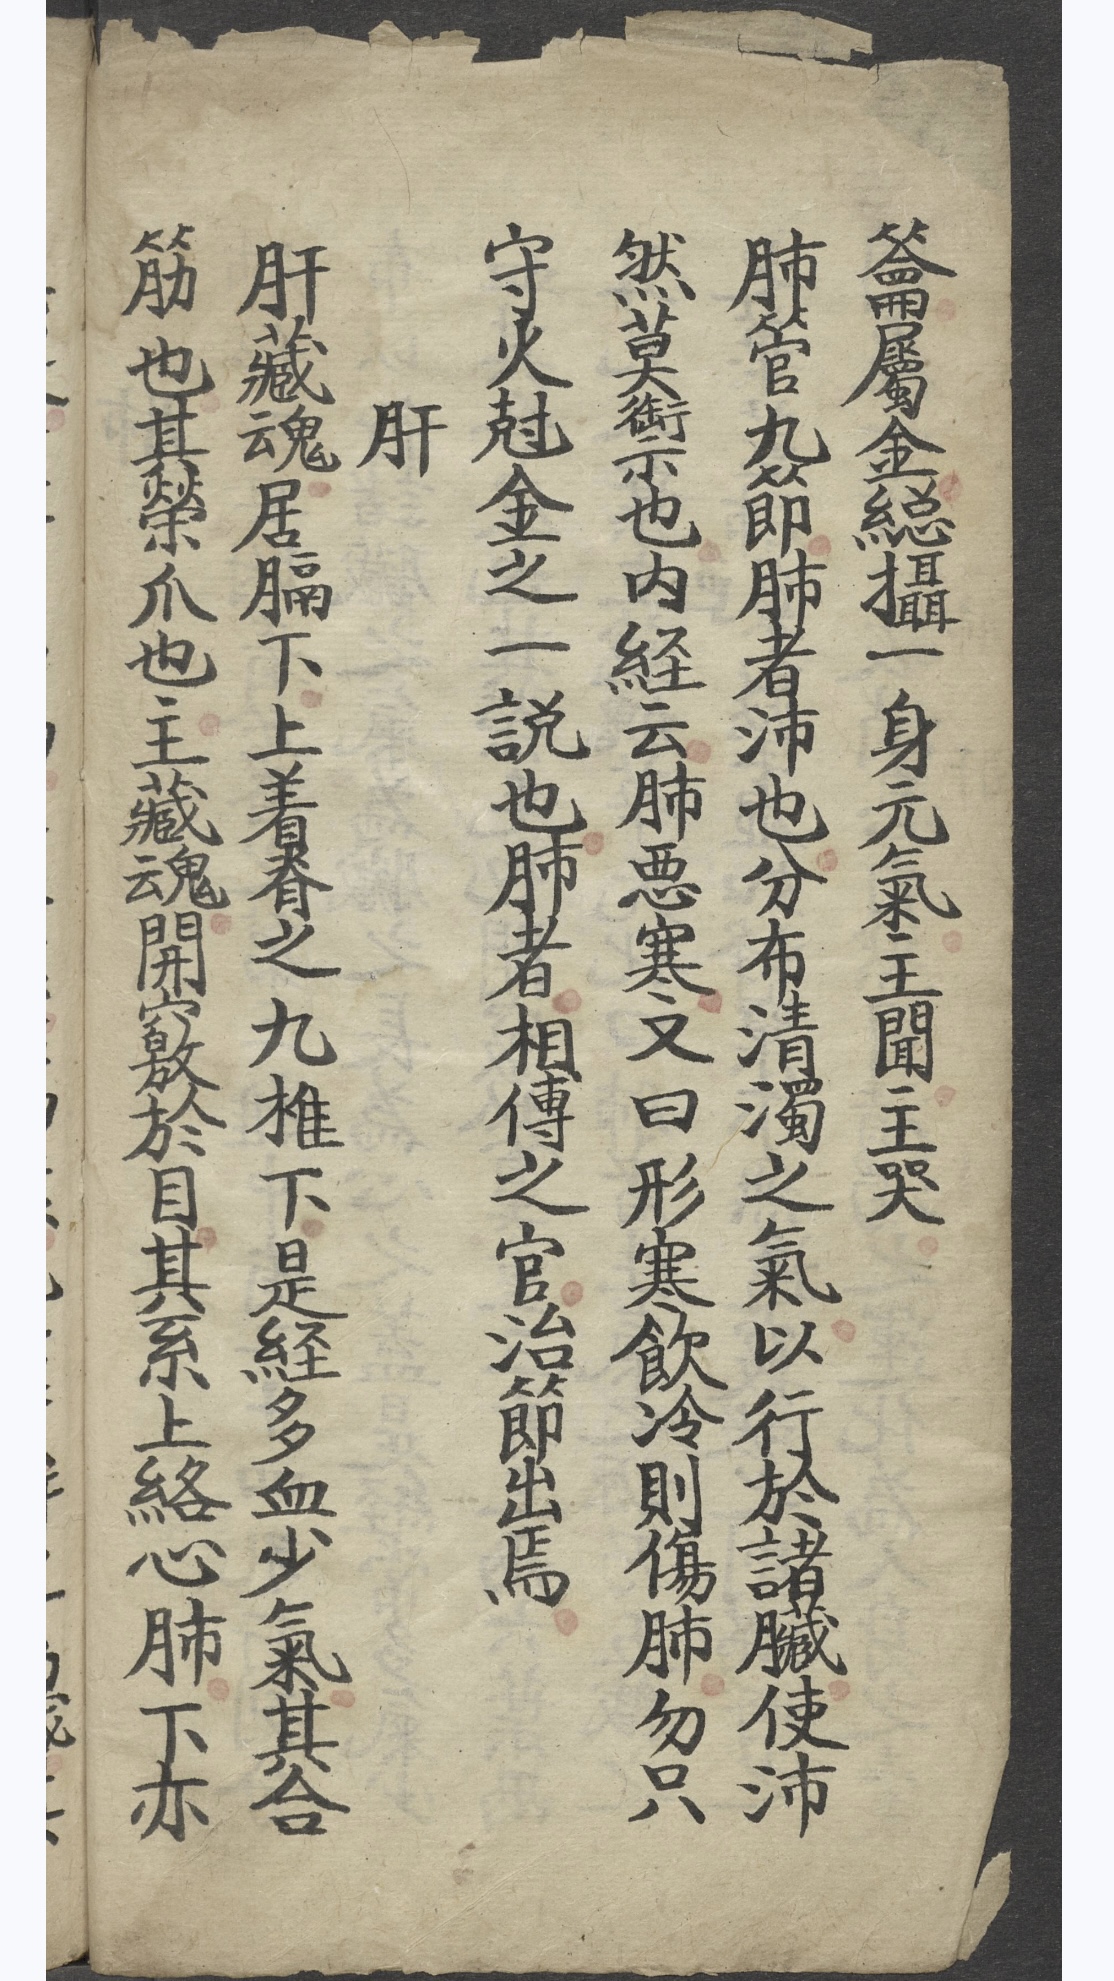 籥屬金縂攝一身元氣主聞主哭
肺管九節肺者沛也分布清濁之氣以行於諸臟使沛
然莫禦也内経云肺悪寒又曰形寒飲冷則傷肺勿只
守火尅金之一説也肺者相傳之官治節出焉
肝
肝藏魂居膈下上着脊之九椎下是経多血少氣其合
筋也其榮爪也主藏魂開竅於目其系上絡心肺下亦